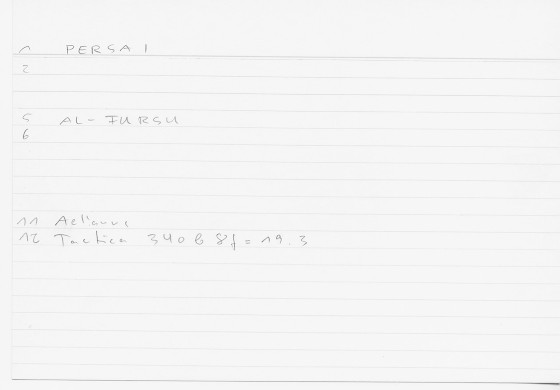 1 PERSAI
2
5 AL-FURSU
6
11 Aeliani
12 Tactica 340 b 8f = 19.3